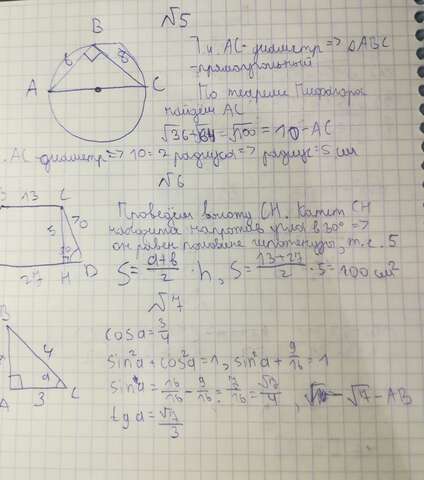 №5
B
6
8
A
C
Т.к. AC-диаметр => ΔABC
-прямоугольный
По теореме Пифагора
найдём AC
√36+64 = √100 = 10 - AC
AC-диаметр => 10 = 2 радиуса => радиус = 5 см
№6
13
C
10
5
27
H
D
Проведём высоту CH. Катет CH
находится напротив угла в 30° =>
он равен половине гипотенузы, т.е. 5
S = a+b/2 · h, S = 13+27/2 · 5 = 100 см²
№7
B
4
a
A
3
C
cos a = 3/4
sin²a + cos²a = 1, sin²a + 9/16 = 1
sin²a = 16/16 - 9/16 = 7/16 = √7/4, √7 - AB
tg a = √7/3